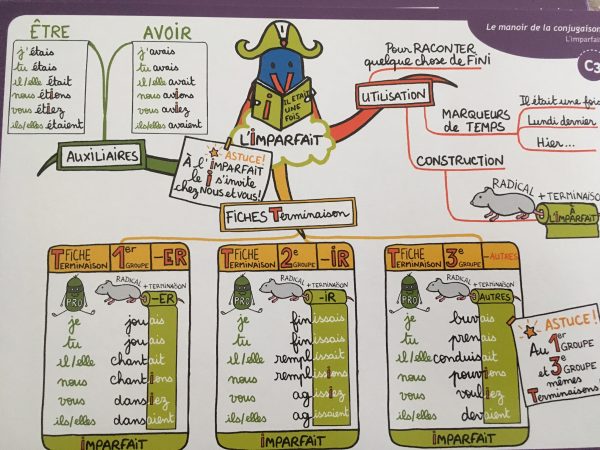 Le manoir de la conjugaison
L'imparfait
C3
ÊTRE
j'étais
tu étais
il/elle était
nous étions
vous étiez
ils/elles étaient
AVOIR
j'avais
tu avais
il/elle avait
nous avions
vous aviez
ils/elles avaient
AUXILIAIRES
i
IL ÉTAIT
UNE
FOIS
L'iMPARFAiT
ASTUCE!
À l'iMPARFAiT
le i s'invite
chez Nous et Vous!
Pour RACONTER
quelque chose de FiNi
UTILISATION
MARQUEURS
de TEMPS
Il était une fois
Lundi dernier
Hier...
CONSTRUCTION
RADICAL
+ TERMINAISON
À
L'IMPARFAIT
FICHES Terminaison
FICHE
TERMINAISON
1er
GROUPE
-ER
PRO
RADICAL
+TERMINAISON
-ER
je jouais
tu jouais
il/elle chantait
nous chantions
vous dansiez
ils/elles dansaient
iMPARFAiT
FICHE
TERMINAISON
2e
GROUPE
-iR
PRO
RADICAL
+TERMINAISON
-iR
je finissais
tu finissais
il/elle remplissait
nous remplissions
vous agissiez
ils/elles agissaient
iMPARFAiT
FICHE
TERMINAISON
3e
GROUPE
-AUTRES
PRO
RADICAL
+TERMINAISON
AUTRES
je buvais
tu prenais
il/elle conduisait
nous pouvions
vous vouliez
ils/elles devaient
iMPARFAiT
ASTUCE!
Au 1er GROUPE
et 3e
GROUPE
mêmes
Terminaisons!